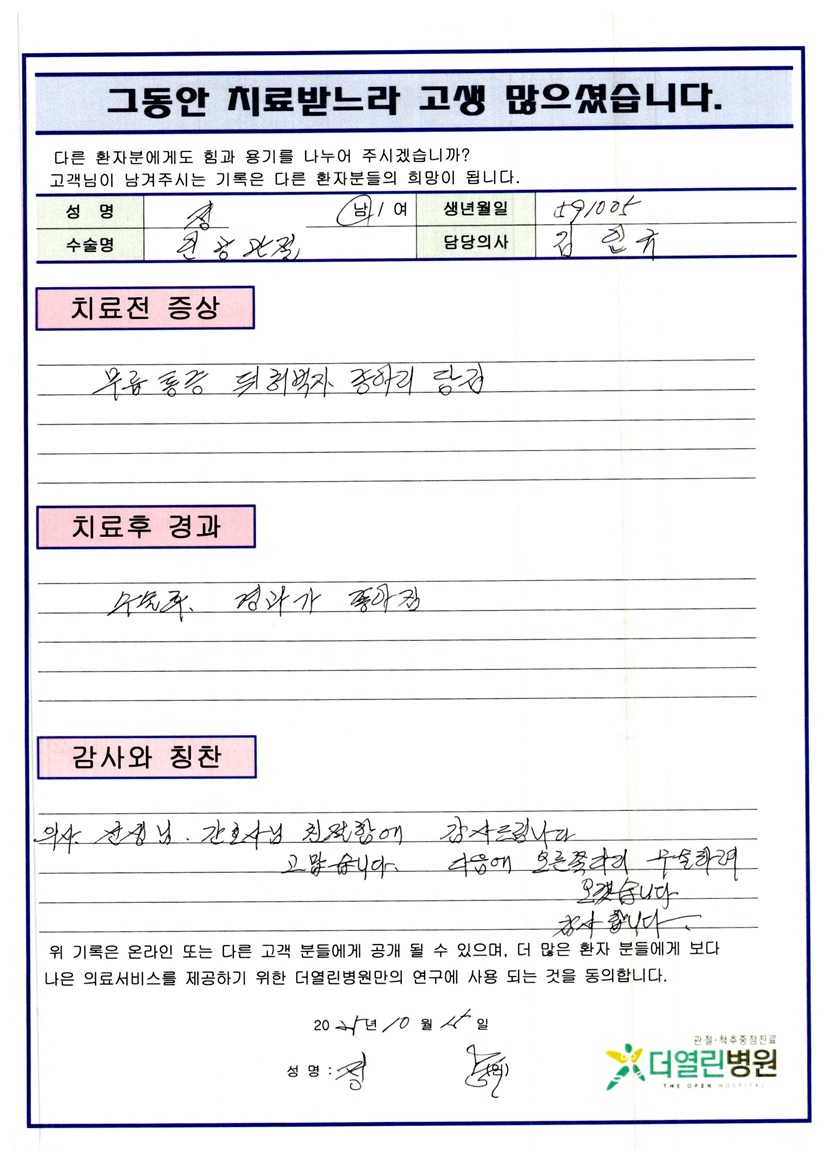 그동안 치료받느라 고생 많으셨습니다.
다른 환자분에게도 힘과 용기를 나누어 주시겠습니까?
고객님이 남겨주시는 기록은 다른 환자분들의 희망이 됩니다.
성 명 정 남 / 여 생년월일 591005
수술명 인공관절 담당의사 김인규
치료전 증상
무릎 통증 뒤 허벅지 종아리 당김
치료후 경과
수술후. 경과가 좋아짐
감사와 칭찬
의사 선생님. 간호사님 친절함에 감사드립니다
고맙습니다. 다음에 오른쪽다리 수술하려
오겠습니다
감사 합니다.
위 기록은 온라인 또는 다른 고객 분들에게 공개 될 수 있으며, 더 많은 환자 분들에게 보다
나은 의료서비스를 제공하기 위한 더열린병원만의 연구에 사용 되는 것을 동의합니다.
20 25년 10 월 15 일
성 명 : 정 (인)
관절·척추중점진료
더열린병원
THE OPEN HOSPITAL